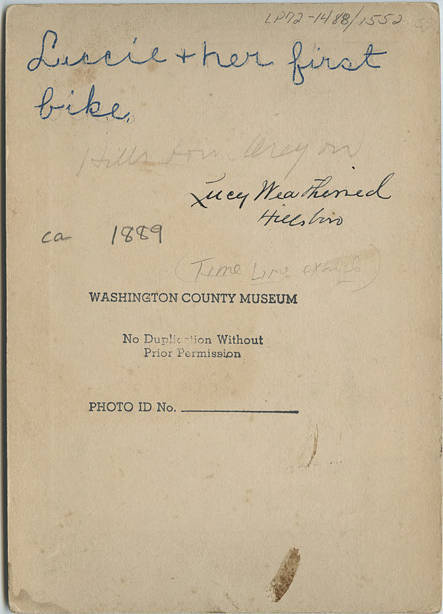 LP72-1488/1552
Luccie + her first
bike.
Hillsboro Oregon
Lucy Weatherred
Hillsboro
ca 1889
(Time Line
WASHINGTON COUNTY MUSEUM
No Duplication Without
Prior Permission
PHOTO ID No.